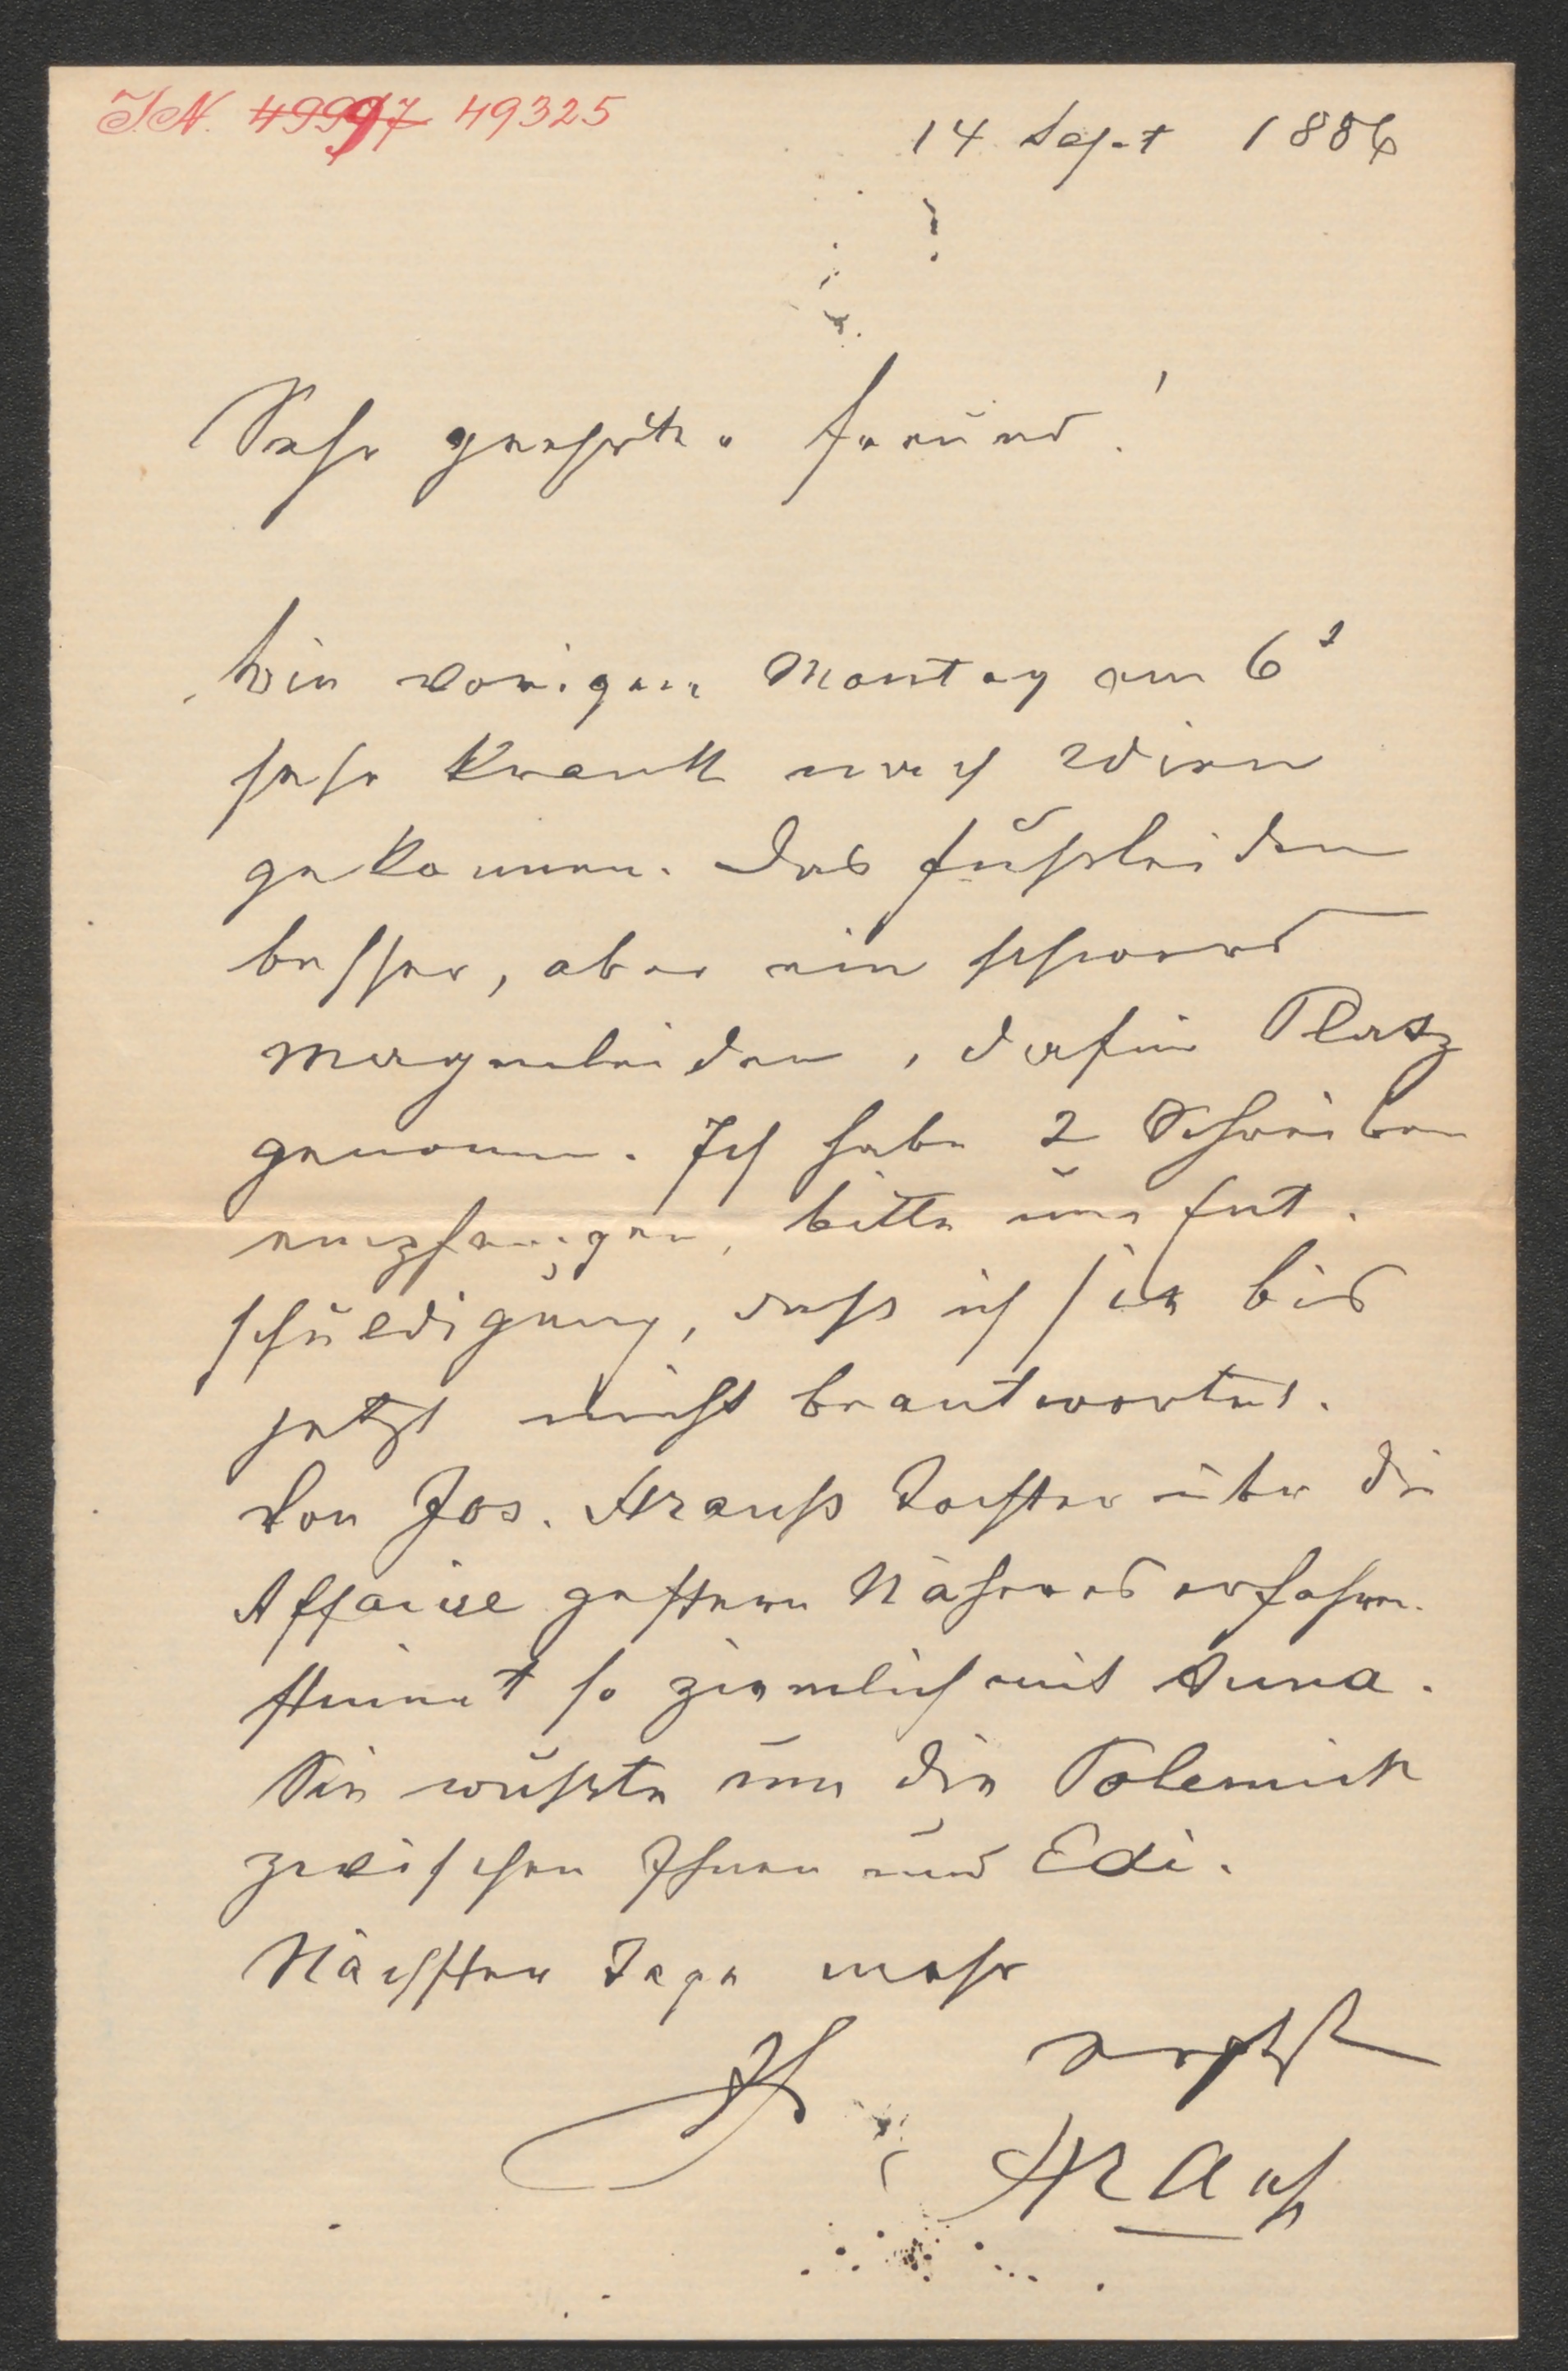 I.N. 49997 49325
14 Sept 1886
Sehr geehrter Freund!
Bin vorigen Montag am 6t
sehr krank nach Wien
gekommen. Das Fußleiden
besser, aber ein schweres
Magenleiden, dafür Platz
genommen. Ich habe 2 Schreiben
empfangen, bitte um Ent-
schuldigung, dass ich sie bis
jetzt nicht beantwortet.
Von Jos. Strauß Tochter über die
Affaire gestern Näheres erfahren.
stimmt so ziemlich mit Anna.
Sie wußte um die Polemik
zwischen Ihnen und Edi.
Nächster Tage mehr
Ihr
Strauß